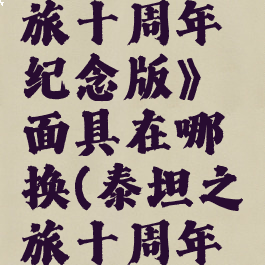 旅十周年
纪念版》
面具在哪
换(泰坦之
旅十周年